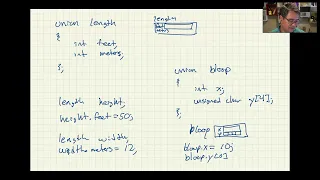 union length
{
int feet;
int meters;
};
length height;
height.feet = 50;
length width;
width.meters = 12;
length
feet
meters
union bloop
{
int x;
unsigned char y[4];
};
bloop
x
y
bloop.x = 10;
bloop.y[0]